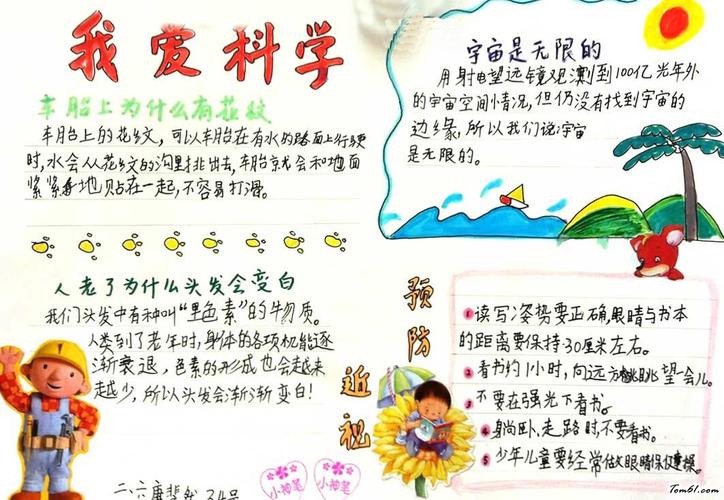 我爱科学
车胎上为什么有花纹
车胎上的花纹，可以车胎在有水的路面上行驶
时，水会从花纹的沟里排出去，车胎就会和地面
紧紧地贴在一起，不容易打滑。
人老了为什么头发会变白
我们头发中有种叫“黑色素”的牛物质。
人类到了老年时，身体的各项机能逐
渐衰退，色素的形成也会越来
越少，所以头发会渐渐变白！
小神笔
小神笔
宇宙是无限的
用射电望远镜观测到100亿光年外
的宇宙空间情况，但仍没有找到宇宙的
边缘，所以我们说宇宙
是无限的。
预防近视
1 读写姿势要正确，眼睛与书本
的距离要保持30厘米左右。
2 看书约1小时，向远方眺望一会儿。
3 不要在强光下看书。
4 躺卧、走路时，不要看书。
5 少年儿童要经常做眼睛保健操。
Tom61.com